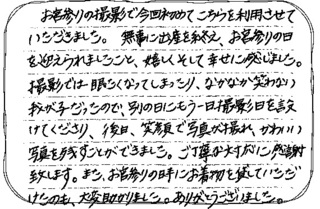 お宮参りの撮影で今回初めてこちらを利用させて
いただきました。無事に出産を終え、お宮参りの日
を迎えられましたこと、嬉しくそして幸せに感じました。
撮影では眠くなってしまったり、なかなか笑わない
我が子だったので、別の日にもう一日撮影日を設
けてくださり、後日、笑顔で写真が撮れ、かわいい
写真を残すことができました。ご丁寧な対応に感謝
致します。また、お宮参りの日時にお着物を貸していただ
けたのも、大変助かりました。ありがとうございました。